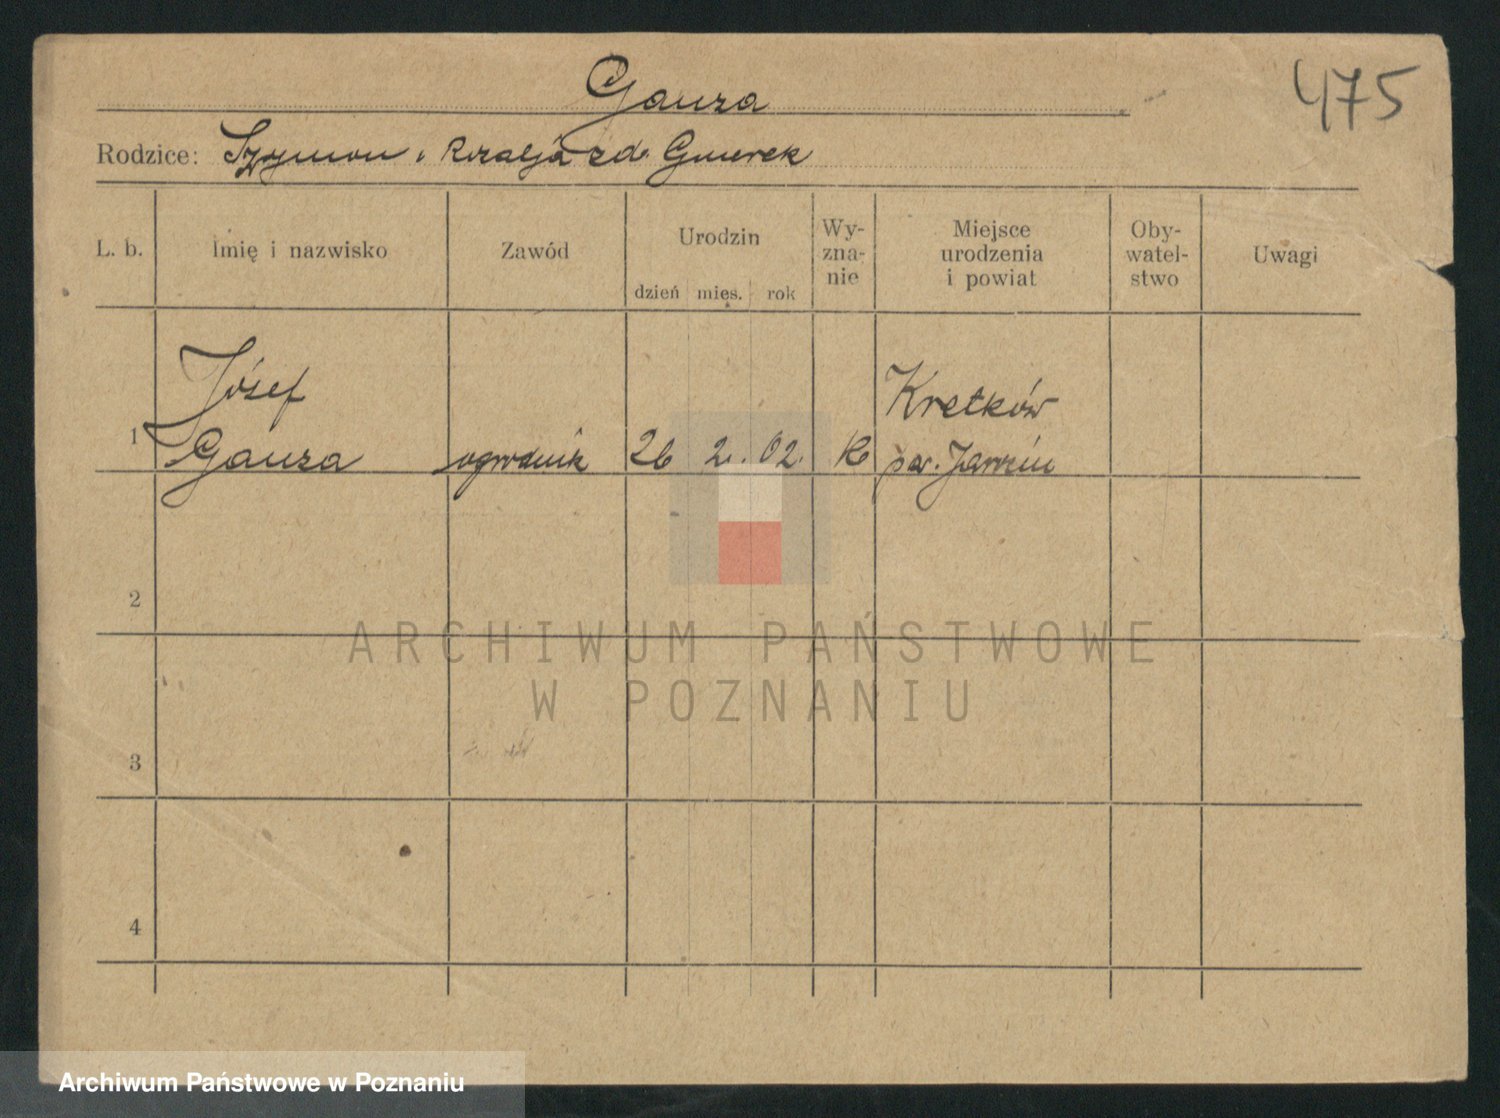 Gauza
475
Rodzice: Szymon i Rozalja zd. Gmerek
L. b.
Imię i nazwisko
Zawód
Urodzin
dzień mies. rok
Wy-
zna-
nie
Miejsce
urodzenia
i powiat
Oby-
watel-
stwo
Uwagi
Józef
1 Gauza ogrodnik 26 2. 02. K
Kretków
pow. Jarocin
2
3
4
ARCHIWUM PAŃSTWOWE
W POZNANIU
Archiwum Państwowe w Poznaniu